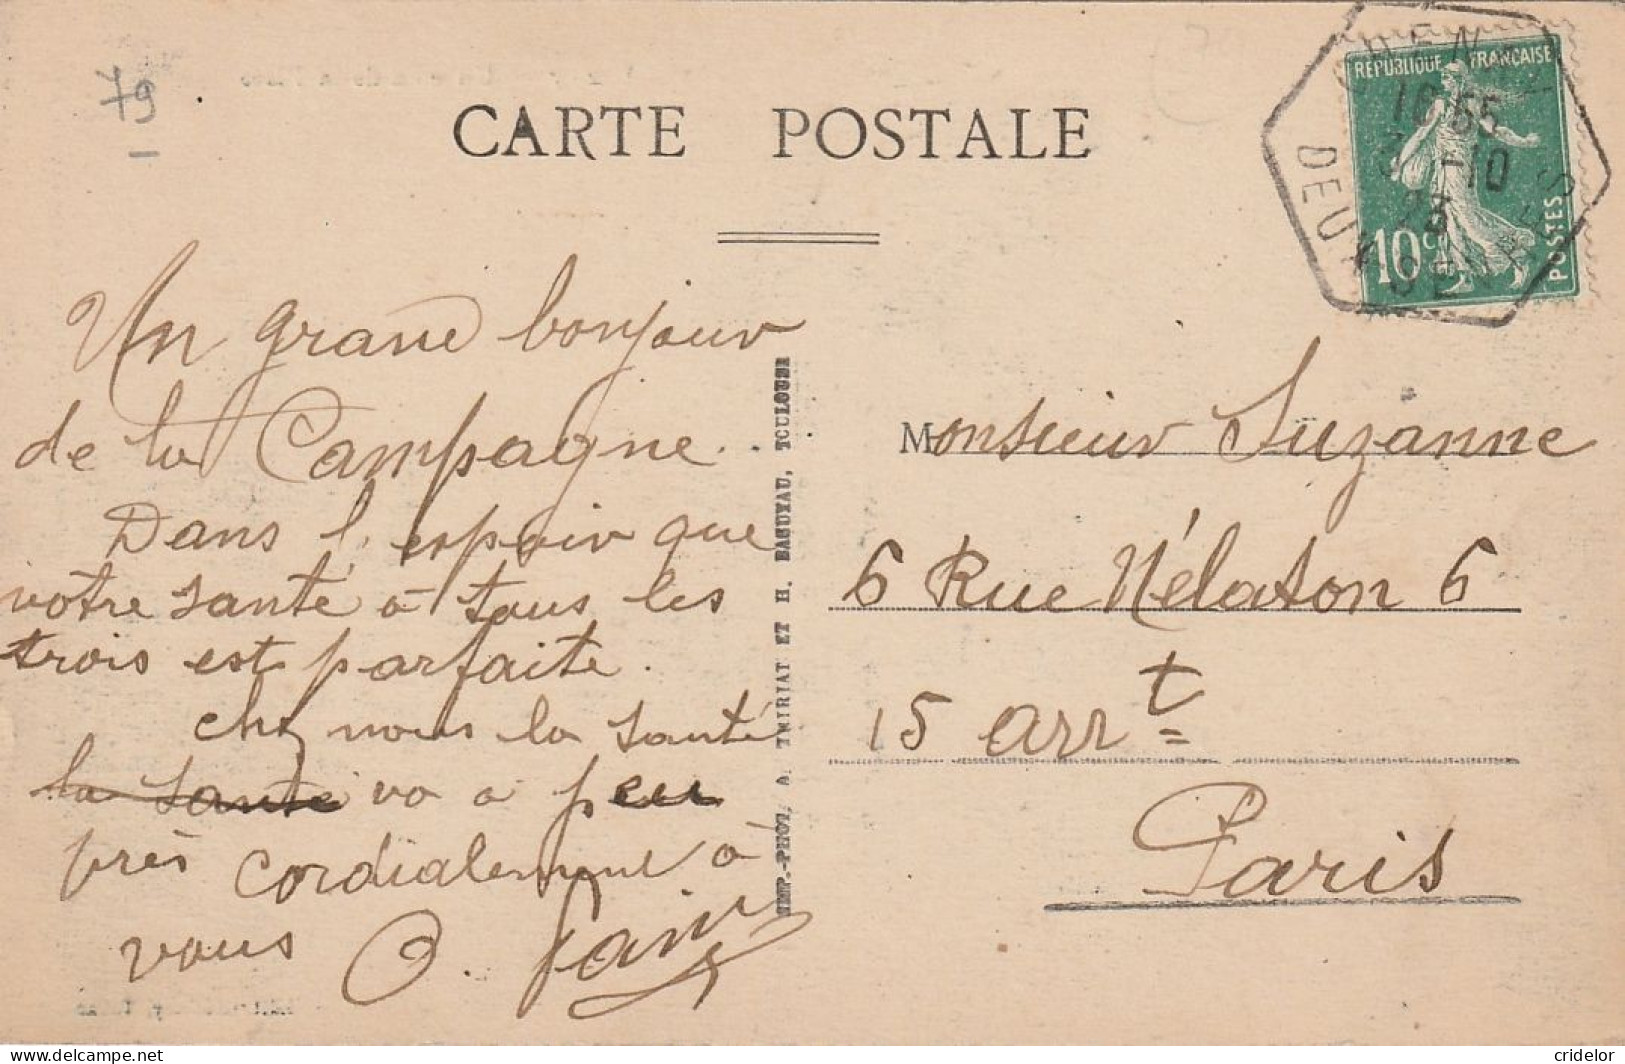 79
CARTE POSTALE
RÉPUBLIQUE FRANÇAISE
10 c
POSTES
16 55
-10
23
DEUX SEVRES
Un grand bonjour
de la Campagne.
Dans l'espoir que
votre santé à tous les
trois est parfaite.
chez nous la santé
la santé va a peu
près cordialement à
vous
IMP.-PHOT. A. THIRIAT ET H. BASUYAU, TOULOUSE
Monsieur Suzanne
6 Rue Nélaton 6
15 arrt
Paris
delcampe.net
cridelor